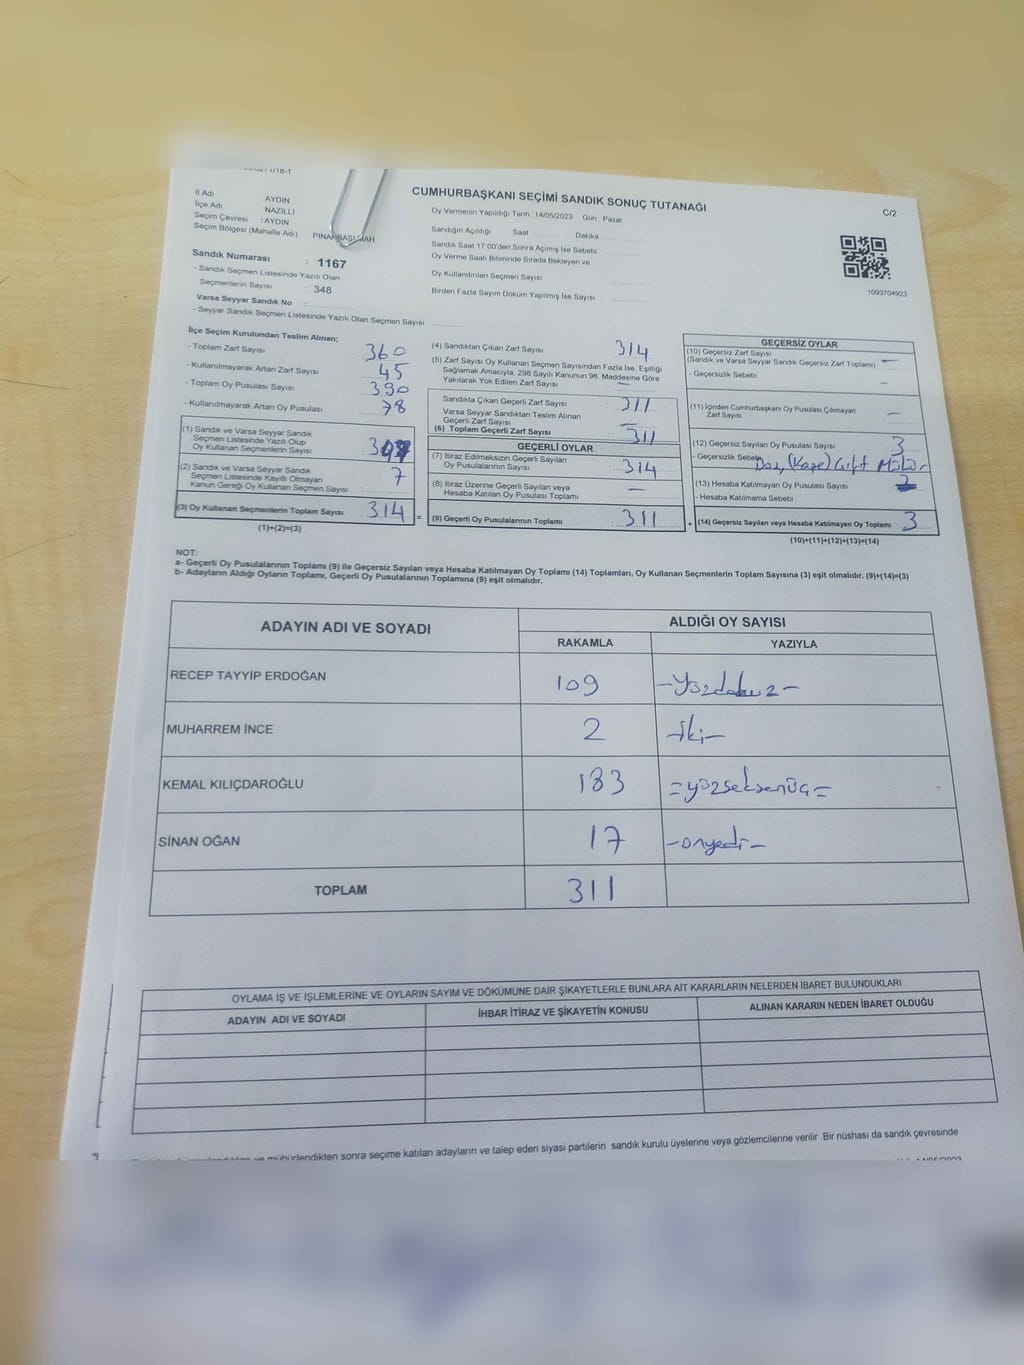 CUMHURBAŞKANI SEÇİMİ SANDIK SONUÇ TUTANAĞI
C/2
İl Adı : AYDIN
İlçe Adı : NAZİLLİ
Seçim Çevresi : AYDIN
Seçim Bölgesi (Mahalle Adı) PINARBAŞI MAH
Sandık Numarası : 1167
- Sandık Seçmen Listesinde Yazılı Olan
Seçmenlerin Sayısı : 348
Varsa Seyyar Sandık No :
- Seyyar Sandık Seçmen Listesinde Yazılı Olan Seçmen Sayısı
Oy Vermenin Yapıldığı Tarih :14/05/2023 Gün : Pazar
Sandığın Açıldığı Saat Dakika
Sandık Saat 17.00'den Sonra Açımış İse Sebebi
Oy Verme Saati Bitiminde Sırada Bekleyen ve
Oy Kullandırılan Seçmen Sayısı
Birden Fazla Sayım Döküm Yapılmış İse Sayısı
1093704923
İlçe Seçim Kurulundan Teslim Alınan;
- Toplam Zarf Sayısı 360
- Kullanılmayarak Artan Zarf Sayısı 45
- Toplam Oy Pusulası Sayısı 390
- Kullanılmayarak Artan Oy Pusulası 78
(1) Sandık ve Varsa Seyyar Sandık
Seçmen Listesinde Yazılı Olup
Oy Kullanan Seçmenlerin Sayısı
(2) Sandık ve Varsa Seyyar Sandık
Seçmen Listesinde Kayıtlı Olmayan
Kanun Gereği Oy Kullanan Seçmen Sayısı 7
(3) Oy Kullanan Seçmenlerin Toplam Sayısı 314 =
(1)+(2)=(3)
(4) Sandıktan Çıkan Zarf Sayısı 314
(5) Zarf Sayısı Oy Kullanan Seçmen Sayısından Fazla İse, Eşitliği
Sağlamak Amacıyla; 298 Sayılı Kanunun 98. Maddesine Göre
Yakılarak Yok Edilen Zarf Sayısı : —
Sandıkta Çıkan Geçerli Zarf Sayısı : 311
Varsa Seyyar Sandıktan Teslim Alınan
Geçerli Zarf Sayısı : —
(6) Toplam Geçerli Zarf Sayısı : 311
GEÇERLİ OYLAR
(7) İtiraz Edilmeksizin Geçerli Sayılan
Oy Pusulalarının Sayısı : 314
(8) İtiraz Üzerine Geçerli Sayılan veya
Hesaba Katılan Oy Pusulası Toplamı : —
(9) Geçerli Oy Pusulalarının Toplamı : 311 +
GEÇERSİZ OYLAR
(10) Geçersiz Zarf Sayısı
(Sandık ve Varsa Seyyar Sandık Geçersiz Zarf Toplamı) : —
- Geçersizlik Sebebi —
(11) İçinden Cumhurbaşkanı Oy Pusulası Çıkmayan
Zarf Sayısı —
(12) Geçersiz Sayılan Oy Pusulası Sayısı 3
- Geçersizlik Sebebi Çift Mühür
(13) Hesaba Katılmayan Oy Pusulası Sayısı
- Hesaba Katılmama Sebebi :
(14) Geçersiz Sayılan veya Hesaba Katılmayan Oy Toplamı : 3
(10)+(11)+(12)+(13)=(14)
NOT:
a- Geçerli Oy Pusulalarının Toplamı (9) ile Geçersiz Sayılan veya Hesaba Katılmayan Oy Toplamı (14) Toplamları, Oy Kullanan Seçmenlerin Toplam Sayısına (3) eşit olmalıdır. (9)+(14)=(3)
b- Adayların Aldığı Oyların Toplamı, Geçerli Oy Pusulalarının Toplamına (9) eşit olmalıdır.
ADAYIN ADI VE SOYADI ALDIĞI OY SAYISI
RAKAMLA YAZIYLA
RECEP TAYYİP ERDOĞAN 109 -Yüzdokuz-
MUHARREM İNCE 2 -İki-
KEMAL KILIÇDAROĞLU 183 =yüzseksenüç=
SİNAN OĞAN 17 -onyedi-
TOPLAM 311
OYLAMA İŞ VE İŞLEMLERİNE VE OYLARIN SAYIM VE DÖKÜMÜNE DAİR ŞİKAYETLERLE BUNLARA AİT KARARLARIN NELERDEN İBARET BULUNDUKLARI
ADAYIN ADI VE SOYADI İHBAR İTİRAZ VE ŞİKAYETİN KONUSU ALINAN KARARIN NEDEN İBARET OLDUĞU
ve mühürlendikten sonra seçime katılan adayların ve talep eden siyasi partilerin sandık kurulu üyelerine veya gözlemcilerine verilir .Bir nüshası da sandık çevresinde